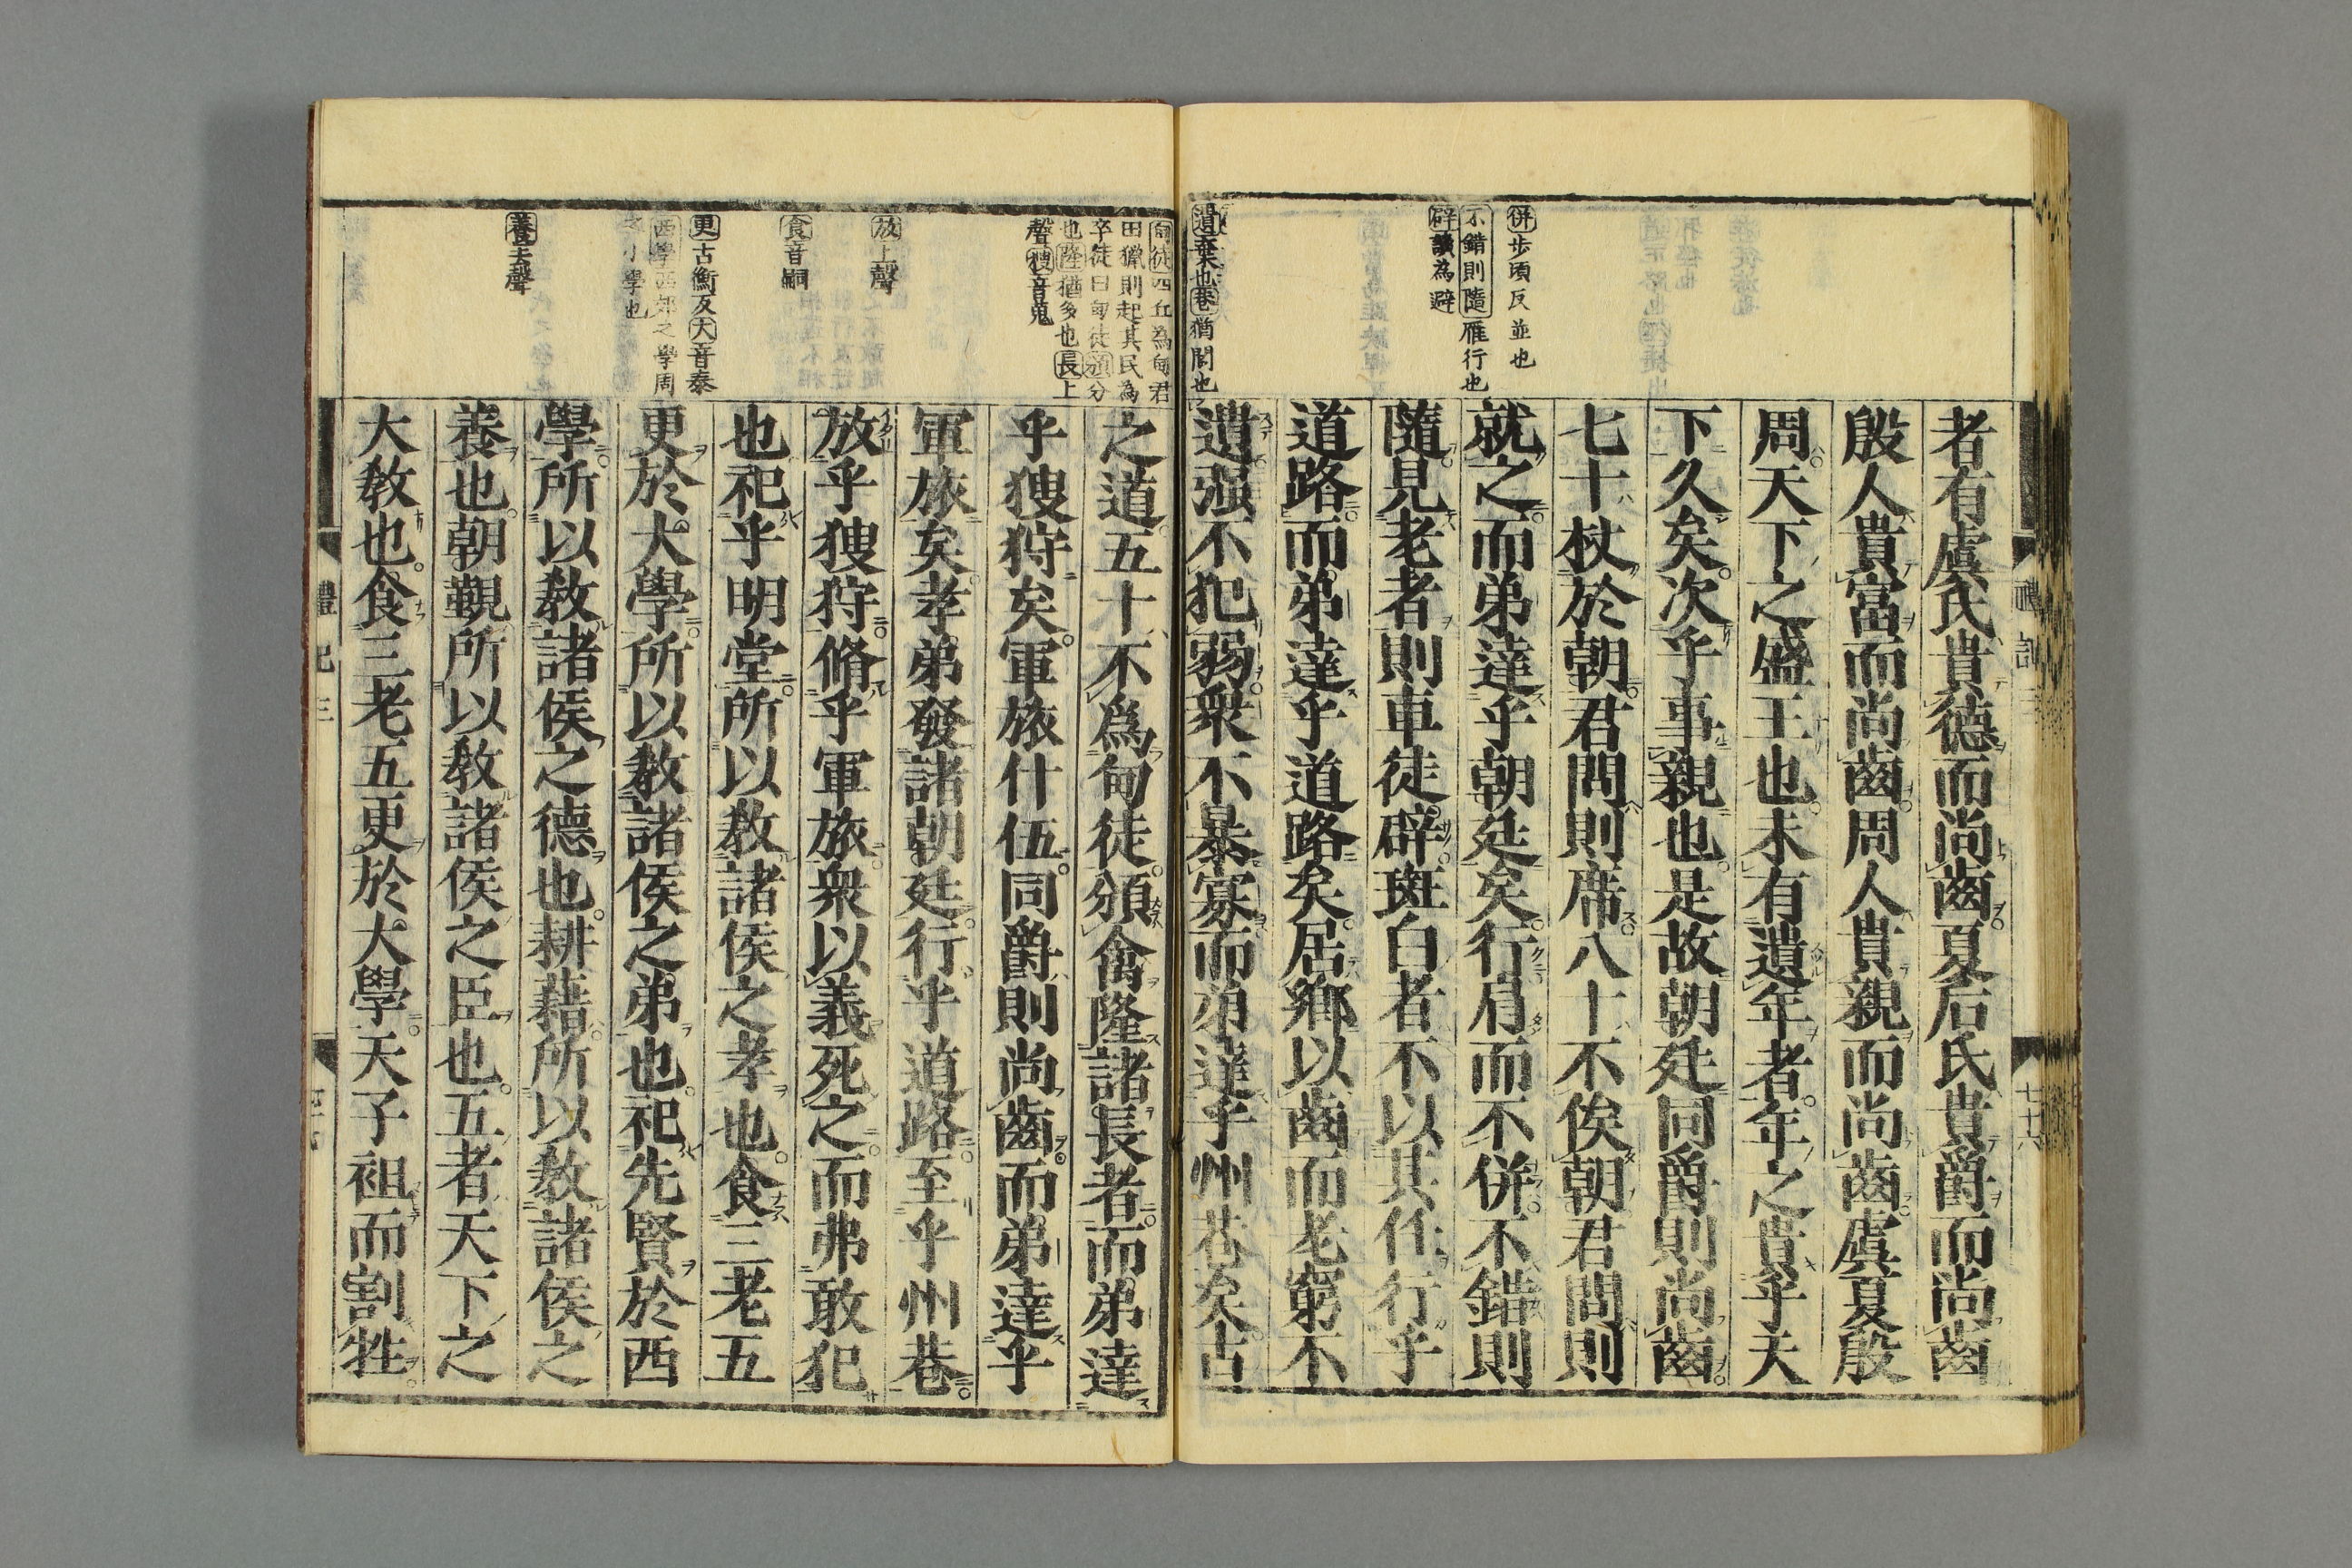 併步頃反並也
不錯則隨雁行也
辟讀為避
遺棄也巷猶閭也
者有虞氏貴德而尚齒夏后氏貴爵而尚齒
殷人貴富而尚齒周人貴親而尚齒虞夏殷
周天下之盛王也未有遺年者年之貴乎天
下久矣次乎事親也是故朝廷同爵則尚齒
七十杖於朝君問則席八十不俟朝君問則
就之而弟達乎朝廷矣行肩而不併不錯則
隨見老者則車徒辟斑白者不以其任行乎
道路而弟達乎道路矣居鄉以齒而老窮不
遺强不犯弱衆不暴寡而弟達乎州巷矣古
甸徒四丘為甸君
田獵則起其民為
卒徒曰甸徒頒分
也隆猶多也長上
聲獀音蒐
放上聲
食音嗣
更古衡反大音泰
西學西郊之學周
之小學也
養去聲
之道五十不爲甸徒頒禽隆諸長者而弟達
乎獀狩矣軍旅什伍同爵則尚齒而弟達乎
軍旅矣孝弟發諸朝廷行乎道路至乎州巷
放乎獀狩脩乎軍旅衆以義死之而弗敢犯
也祀乎明堂所以敎諸侯之孝也食三老五
更於大學所以敎諸侯之弟也祀先賢於西
學所以敎諸侯之德也耕藉所以敎諸侯之
養也朝覲所以敎諸侯之臣也五者天下之
大敎也食三老五更於大學天子袒而割牲
禮記三